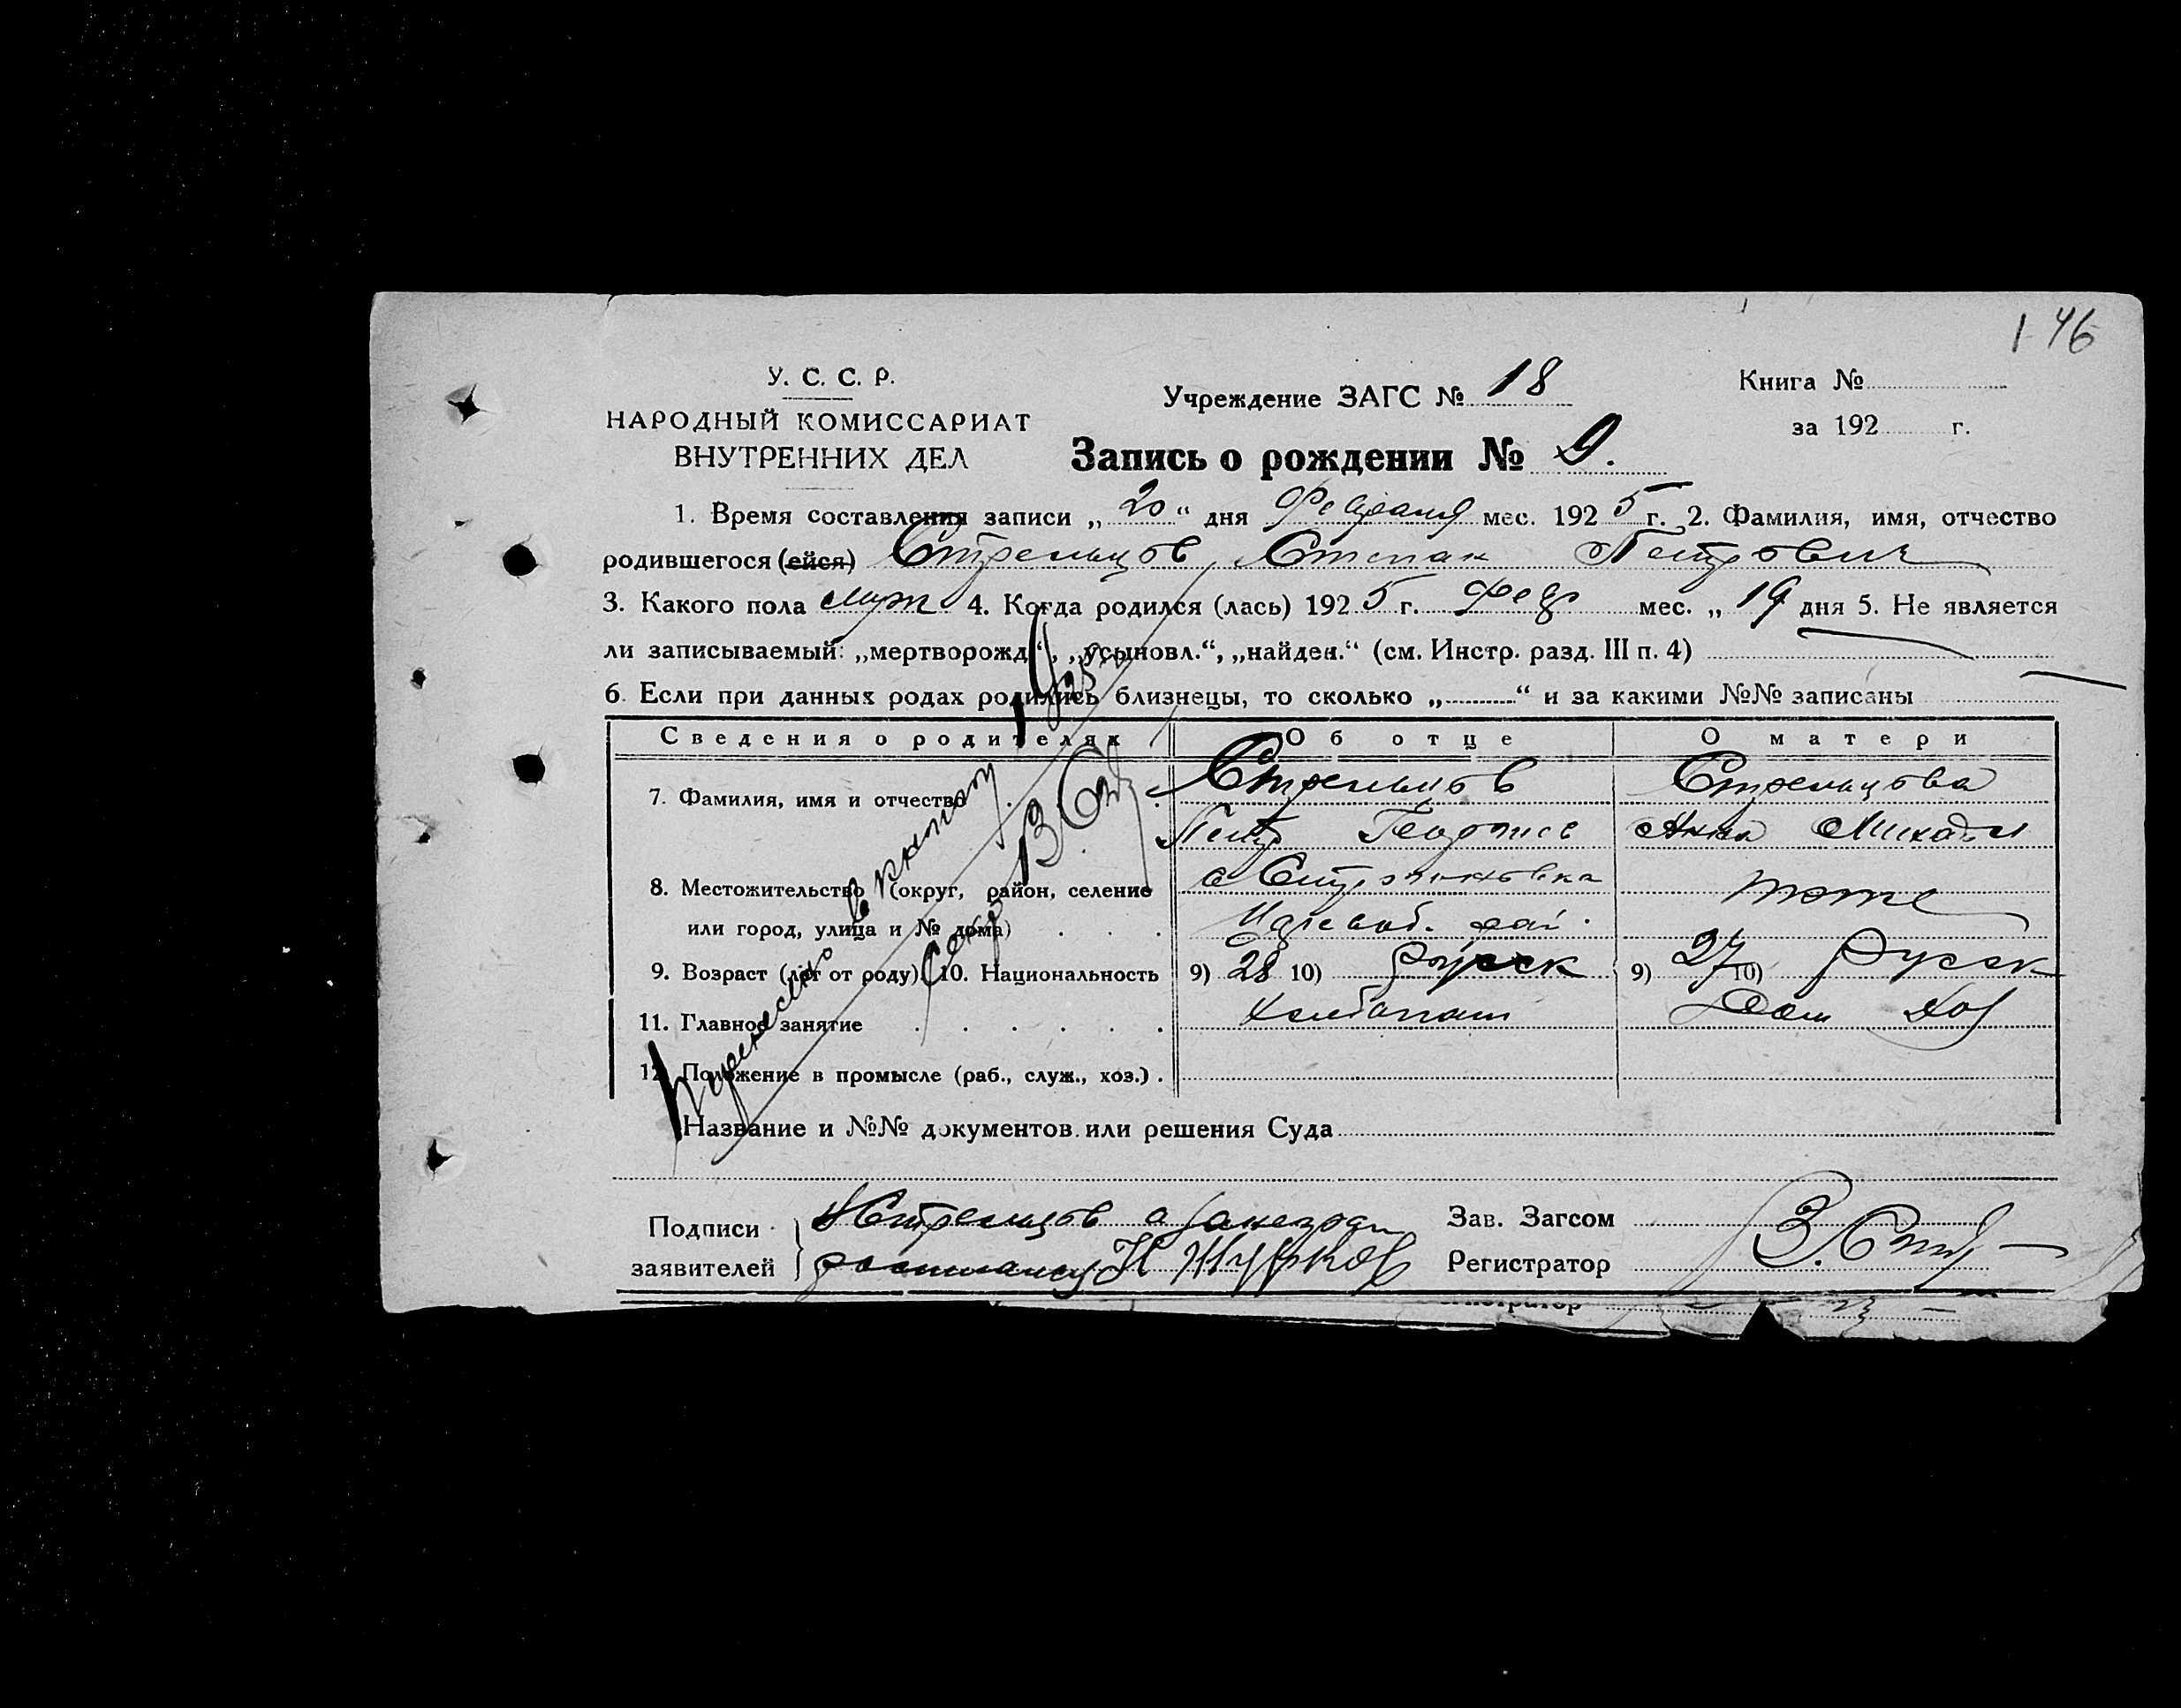 146
У. С. С. Р.
НАРОДНЫЙ КОМИССАРИАТ
ВНУТРЕННИХ ДЕЛ
Учреждение ЗАГС № 18
Книга №
за 192 г.
Запись о рождении № 9.
1. Время составления записи „20“ дня Февраля мес. 1925 г. 2. Фамилия, имя, отчество
родившегося (ейся) Стрельцов Степан Петрович
3. Какого пола муж 4. Когда родился (лась) 1925 г. Февр мес. „19 дня 5. Не является
ли записываемый: „мертворожд.“, „усыновл.“, „найден.“ (см. Инстр. разд. III п. 4)
6. Если при данных родах родились близнецы, то сколько „ “ и за какими №№ записаны
Сведения о родителях Об отце О матери
7. Фамилия, имя и отчество Стрельцов Стрельцова
Петр Георгиев Анна Михайл
8. Местожительство (округ, район, селение с тоже
или город, улица и № дома)
9. Возраст (лет от роду). 10. Национальность 9) 28 10) русск 9) 27 10) Русск
11. Главное занятие хлебопаш Дом хоз
12. Положение в промысле (раб., служ., хоз.)
Название и №№ документов или решения Суда
Перенесено в книгу
Секр
Подписи Стрельцов а
заявителей расписался Н Журков
Зав. Загсом
Регистратор